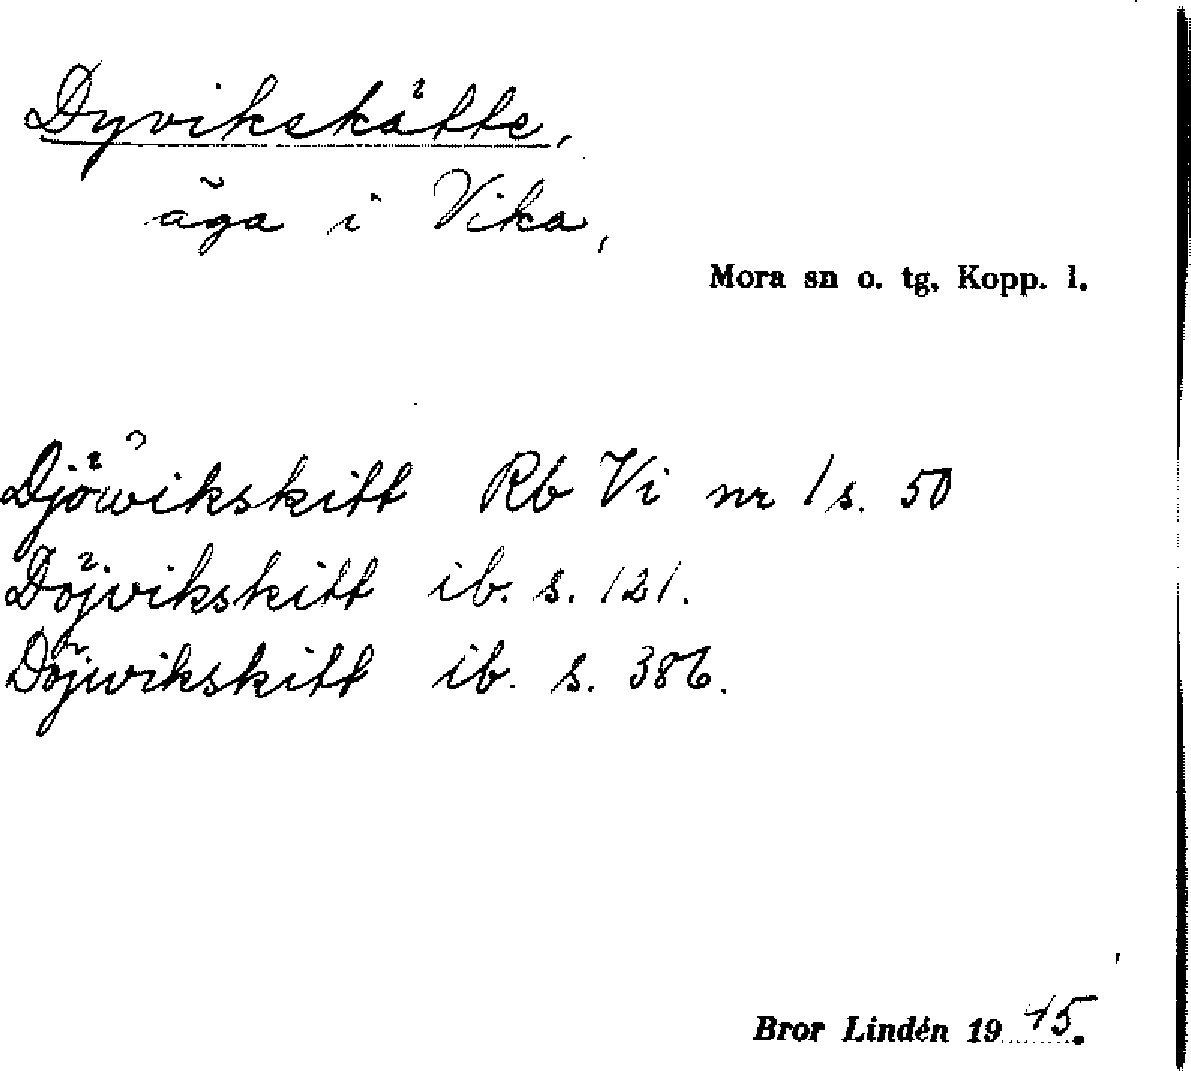 Dyvikskätte,
äga i Vika,
Mora sn o. tg, Kopp. l.
Djöwikskitt Rb Vi nr 1 s. 50
Döjvikskitt ib. s. 121.
Döjwikskitt ib. s. 386.
Bror Lindén 1945.